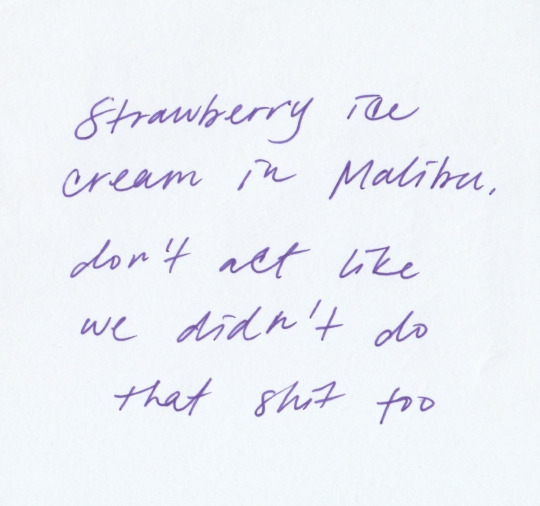 Strawberry ice
cream in Malibu.
don't act like
we didn't do
that shit too